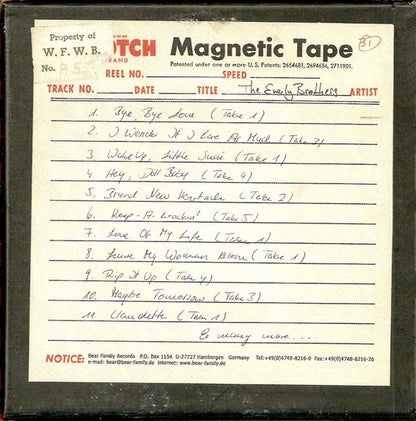 Property of
W. F. W. B.
No. A5
OTCH
BRAND
Magnetic Tape
Patented under one or more U.S. Patents: 2654681, 2694656, 2711901.
REEL NO. SPEED
TRACK NO. DATE TITLE The Everly Brothers ARTIST
1. Bye, Bye Love (Take 1)
2. I Wonder If I Care As Much (Take 3)
3. Wake Up, Little Susie (Take 1)
4. Hey, Doll Baby (Take 4)
5. Brand New Heartache (Take 2)
6. Keep-A-Knockin' (Take 5)
7. Love Of My Life (Take 1)
8. Leave My Woman Alone (Take 1)
9. Rip It Up (Take 4)
10. Maybe Tomorrow (Take 3)
11. Claudette (Take 1)
& many more....
NOTICE: Bear Family Records P.O. Box 1154 D-27727 Hambergen Germany Tel:+49(0)4748-8216-0 Fax:+49(0)4748-8216-20
e-mail: bear@bear-family.de internet: www.bear-family.de